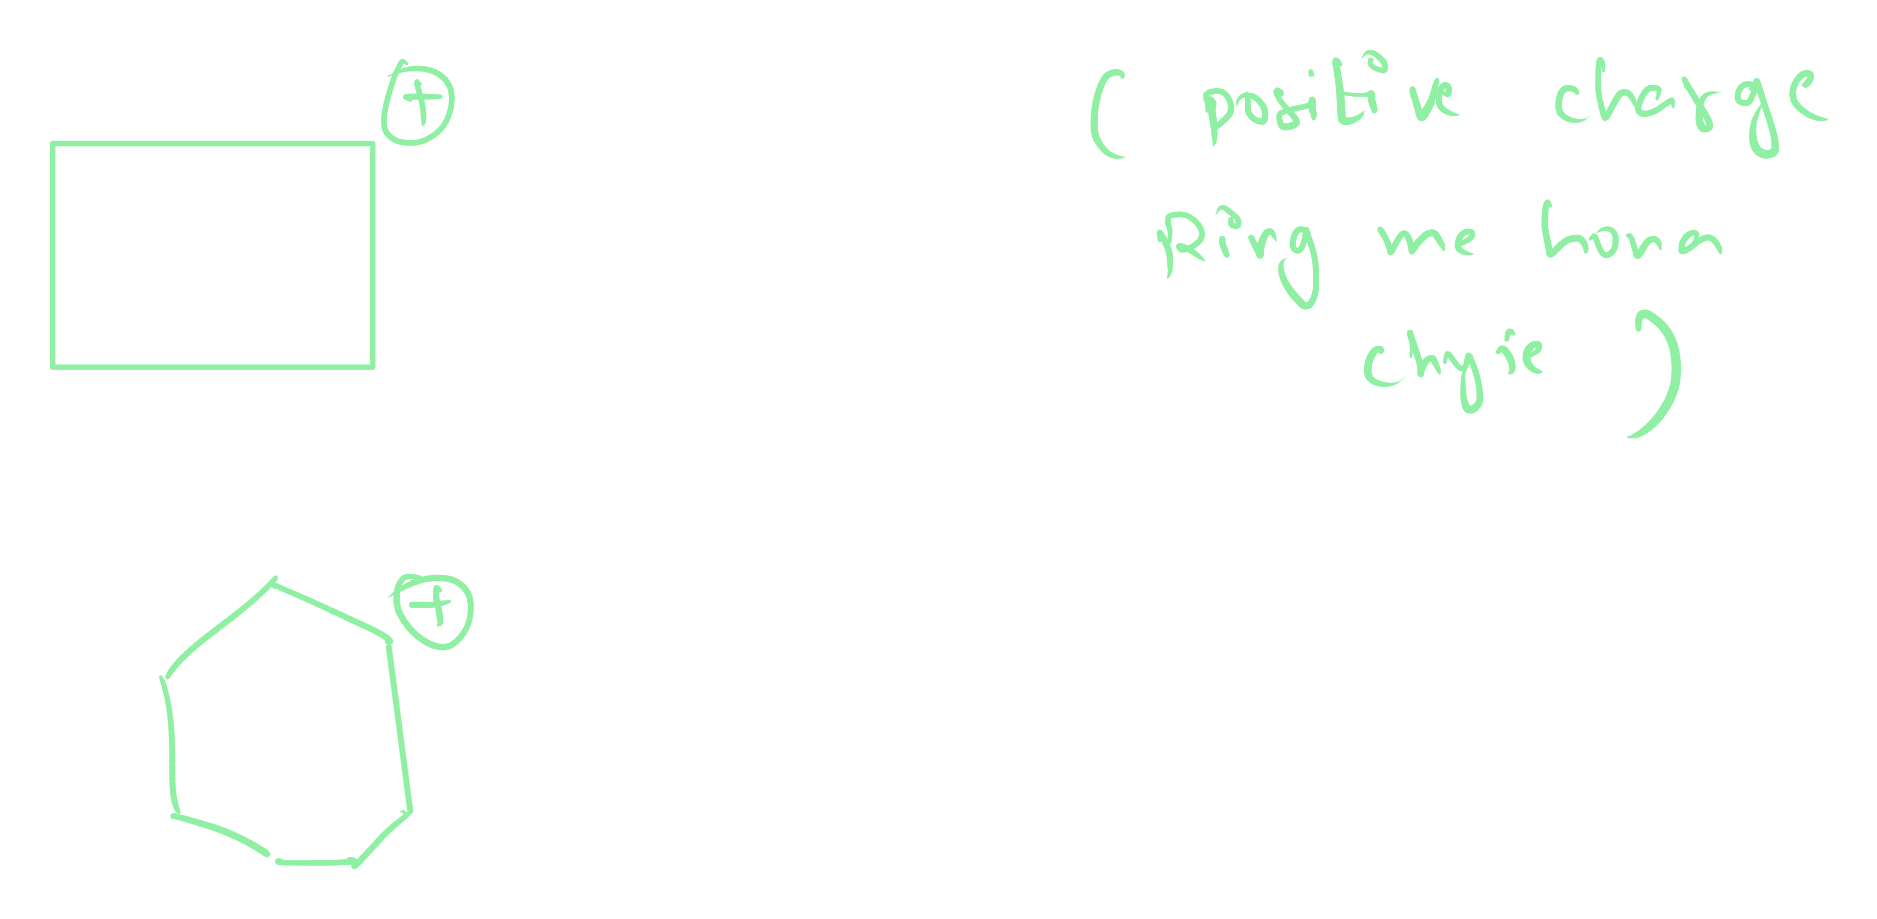 +
( positive charge
Ring me hona
chyie )
+